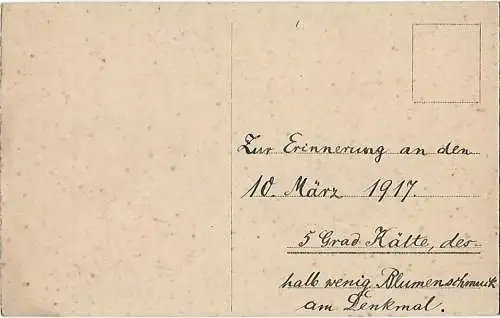 Zur Erinnerung an den
10. März 1917.
5 Grad Kälte, des-
halb wenig Blumenschmuck
am Denkmal.